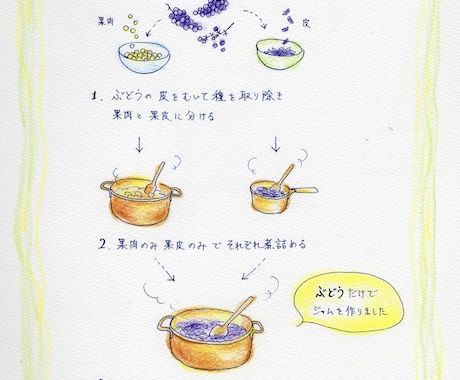 果肉
皮
1. ぶどうの皮をむいて種を取り除き
果肉と果皮に分ける
2. 果肉のみ 果皮のみで それぞれ煮詰める
ぶどうだけで
ジャムを作りました